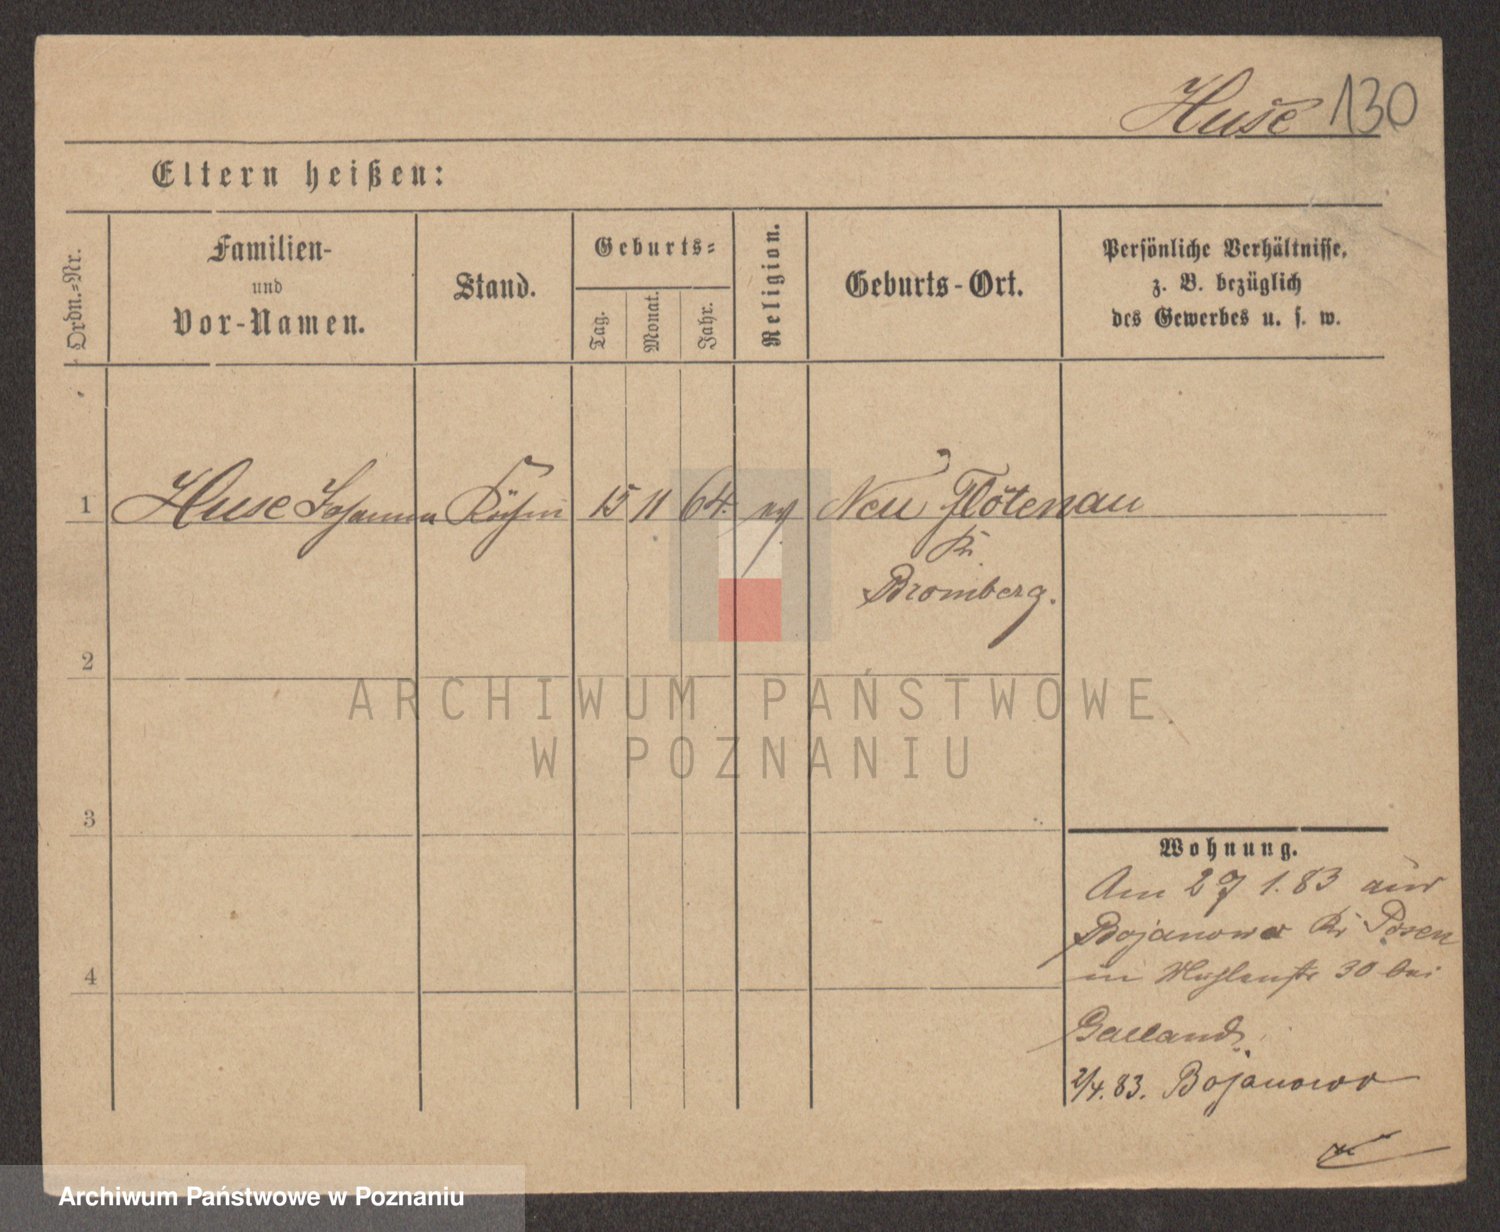 Huse 130
Eltern heißen:
Ordn.-Nr.
Familien-
und
Vor-Namen.
Stand.
Geburts-
Tag.
Monat.
Jahr.
Religion.
Geburts-Ort.
Persönliche Verhältnisse,
z. B. bezüglich
des Gewerbes u. s. w.
1 Huse Johanna Köchin 15 11 64. ev Neu Flötenau
Kr.
Bromberg.
2
3
4
Wohnung.
Am 27 1. 83 aus
Bojanowo Kr Posen
in Mühlenstr 30 bei
Galland.
2/4. 83. Bojanowo
ARCHIWUM PAŃSTWOWE
W POZNANIU
Archiwum Państwowe w Poznaniu